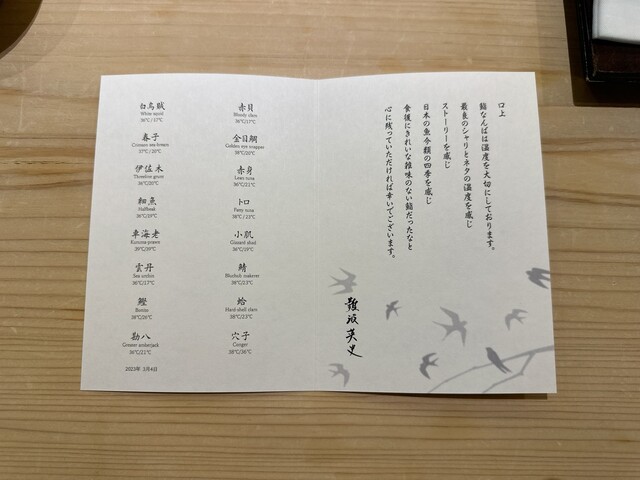 口上
鮨なんばは温度を大切にしております。
最良のシャリとネタの温度を感じ
ストーリーを感じ
日本の魚今類の四季を感じ
食後にきれいな雑味のない鮨だったなと
心に残っていただければ幸いでございます。
難波英史
赤貝
Bloody clam
36℃/17℃
金目鯛
Golden eye snapper
38℃/20℃
赤身
Lean tuna
36℃/21℃
トロ
Fatty tuna
38℃/23℃
小肌
Gizzard shad
36℃/19℃
鯖
Bluefish makerer
38℃/23℃
蛤
Hard-shell clam
38℃/23℃
穴子
Conger
38℃/36℃
白烏賊
White squid
36℃/17℃
春子
Crimson sea-bream
37℃/20℃
伊佐木
Threeline grunt
36℃/20℃
細魚
Halfbeak
36℃/19℃
車海老
Kuruma prawn
39℃/39℃
雲丹
Sea urchin
36℃/17℃
鰹
Bonito
38℃/26℃
勘八
Greater amberjack
36℃/21℃
2023年 3月4日